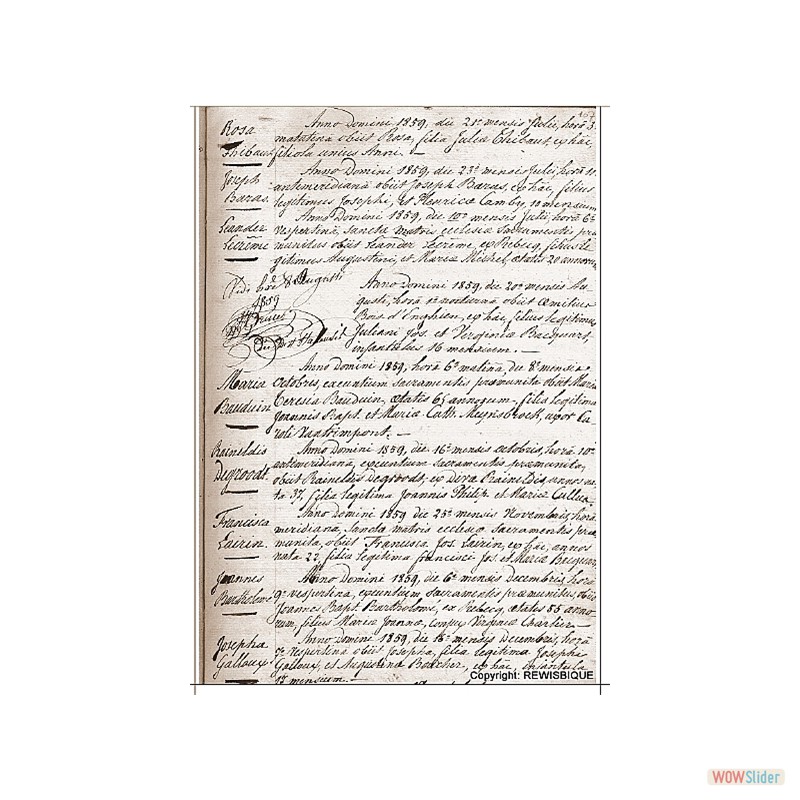 Rosa
Thibaut
Anno Domini 1859, die 21ª mensis Julii, horâ 3ª
matutinâ obiit Rosa, filia Julia Thibaut, ex hâc,
filiola unius Anni. —
Joseph
Baras
Anno Domini 1859, die 23ª mensis Julii, horâ 11ª
antemeridianâ obiit Joseph Baras, ex hâc, filius
legitimus Josephi, et Henrica Camby, 10 mensium
Leander
Lecrême
Anno Domini 1859, die 10ª mensis Julii, horâ 6ª
vespertinâ, sancta matris ecclesia sacramentis præ
munitus obiit Leander Lecrême, ex Rebecq, filius le
gitimus Augustini, et Maria Michel, ætatis 20 annorum
Vidi hâc die 8 Augusti
1859
Anno Domini 1859, die 20ª mensis Au-
gusti, horâ nocturnâ obiit
Bois d'Enghien, ex hâc, filius legitimus
Juliani Jos. et Verginia Bacquart,
infantulus 16 mensium. —
Maria
Bauduin
Anno Domini 1859, horâ 6ª matinâ, die 8ª mensis
octobris, exeuntium sacramentis præmunita obiit Maria
Teresia Bauduin, ætatis 65 annorum, filia legitima
Joannis Bapt. et Maria Cath. Meynsbroek, uxor Ca
roli Vantrimpont. —
Raineldis
Degroodt
Anno Domini 1859, die 16ª mensis octobris, horâ 10ª
antemeridianâ, exeuntium sacramentis præmunita,
obiit Raineldis Degroodt, ex Raineldis, annos na
ta 37, filia legitima Joannis Philip. et Maria
Francisca
Lairin
Anno Domini 1859 die 25ª mensis Novembris, horâ
meridianâ, sancta matris ecclesiæ sacramentis præ
munita, obiit Francisca Jos. Lairin, ex hâc, annos
nata 22, filia legitima francisci Jos. et Maria Bacquart
Joannes
Bartholomé
Anno Domini 1859, die 6ª mensis Decembris, horâ
9ª vespertinâ, exeuntium sacramentis præmunitus, obiit
Joannes Bapt. Bartholomé, ex Rebecq, ætatis 55 anno
rum, filius Maria Joanna, conjux Virginia Chartier
Josepha
Galloux
Anno Domini 1859, die 15ª mensis Decembris, horâ
vespertinâ obiit Josepha, filia legitima Josephi
Galloux, et Augustina Bascher, ex hâc, infantula
mensium. —
Copyright: REWISBIQUE
WOWSlider